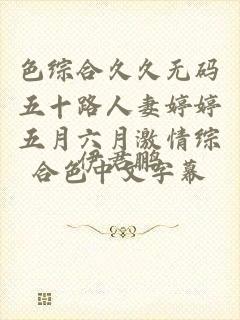 色综合久久无码
五十路人妻婷婷
五月六月激情综
合色中文字幕
伊君鹏